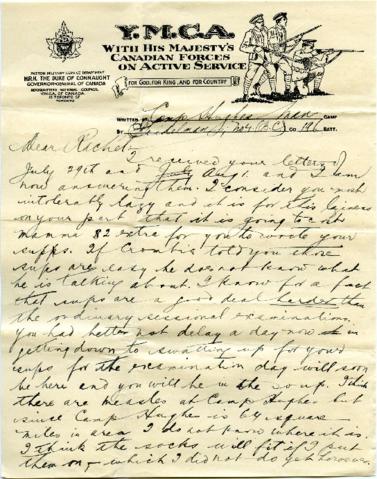 Y.M.C.A.
WITH HIS MAJESTY'S
CANADIAN FORCES
ON ACTIVE SERVICE
PATRON MILITARY SERVICE DEPARTMENT
H.R.H. THE DUKE OF CONNAUGHT
GOVERNOR-GENERAL OF CANADA
HEADQUARTERS NATIONAL COUNCIL
Y.M.C.A. OF CANADA
15 TORONTO ST
TORONTO
FOR GOD, FOR KING, AND FOR COUNTRY
WRITTEN Camp Hughes CAMP
BY CO 196 BATT.
Dear
I received your letters of
July 29th and Aug 1. and I am
now answering them. I consider you most
intolerably lazy and it is for this laziness
on your part that it is going to
mamma $2 extra for you to write your
supps. If Crombie told you those
sups are easy he does not know what
he is talking about. I know for a fact
that sups are a good deal harder than
the ordinary sessional examinations.
You had better not delay a day now in
getting down to swatting up for your
sups for the examination day will soon
be here and you will be in the soup. I think
there are measles at Camp Hughes but
since Camp Hughes is 64 square
miles in area I do not know where it is.
I think the socks will fit if I put
them on - which I did not do yet however.